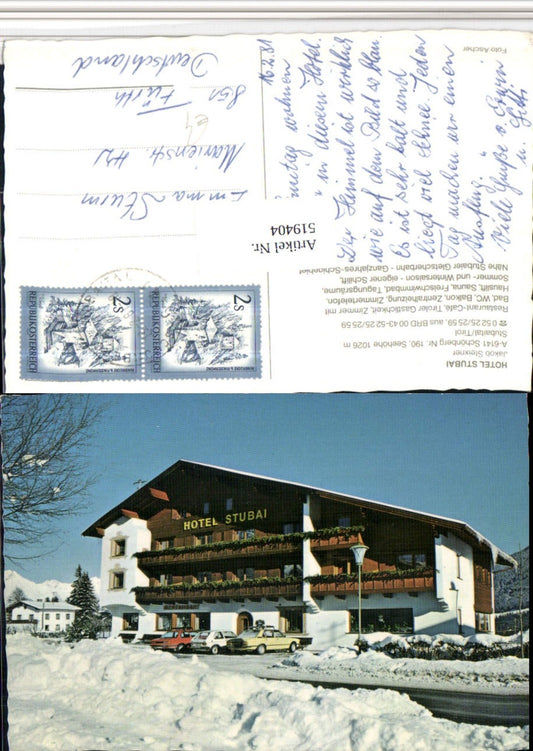 Foto Ascher
16.2.81
wohnen
in diesem Hotel.
Der Himmel ist wirklich
wie auf dem Bild so blau.
Es ist sehr kalt und
liegt viel Schnee. Jeden
Tag machen wir einen
Ausflug.
Viele Grüße v. Erwin
u.
Emma Sturm
Marienstr.
851 Fürth
Deutschland
Artikel Nr.
519404
HOTEL STUBAI
Jakob Steixner
A-6141 Schönberg Nr. 190, Seehöhe 1026 m
Stubaital/Tirol
☎ 0 52 25/25 59, aus BRD 00 43-52 25/25 59
Restaurant-Café, Gute Tiroler Gastlichkeit, Zimmer mit
Bad, WC, Balkon, Zentralheizung, Zimmertelefon,
Hauslift, Sauna, Freischwimmbad, Tagungsräume,
Sommer- und Wintersaison - eigener Schilift.
Nähe Stubaier Gletscherbahn - Ganzjahres-Schibetrieb
2s
REPUBLIK ÖSTERREICH
2s
REPUBLIK ÖSTERREICH
HOTEL STUBAI